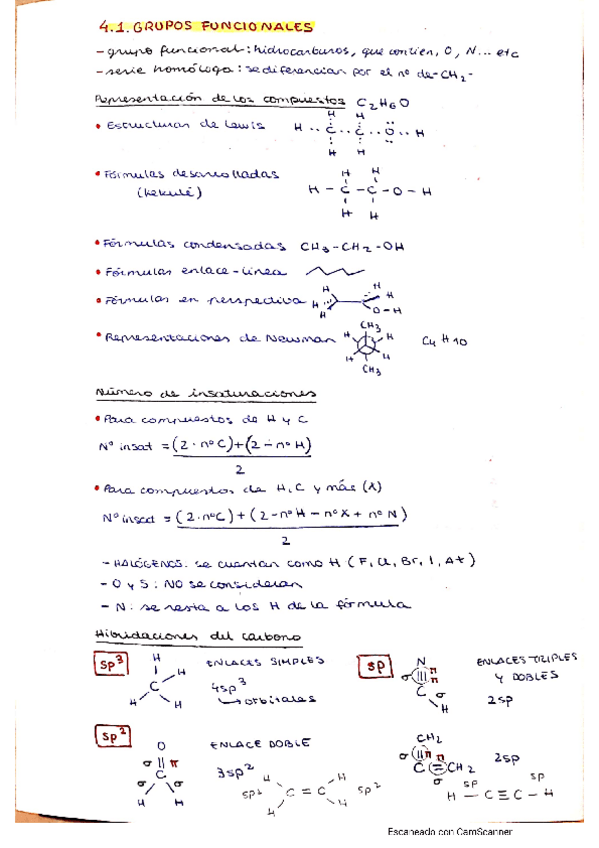 4.1. GRUPOS FUNCIONALES
- grupo funcional: hidrocarburos, que contien, O, N... etc
- serie homóloga: se diferencian por el nº de -CH2-
Representación de los compuestos C2H6O
• Estructuras de Lewis H .. C .. C .. O .. H
H H
H H
• Fórmulas desarrolladas
(Kekulé)
H H
H - C - C - O - H
H H
• Fórmulas condensadas CH3-CH2-OH
• Fórmulas enlace-línea
• Fórmulas en perspectiva H H H H H O-H
• Representaciones de Newman CH3 H H H H CH3 C4H10
Número de insaturaciones
• Para compuestos de H y C
Nº insat = (2 · nºC)+(2 - nºH)
2
• Para compuestos de H, C y más (X)
Nº insat = (2·nºC) + (2 - nºH - nºX + nº N)
2
- HALÓGENOS: se cuentan como H (F, Cl, Br, I, At)
- O y S: NO se consideran
- N: se resta a los H de la fórmula
Hibridaciones del carbono
sp3 H H C H H ENLACES SIMPLES
4sp3
orbitales
sp N π π σ C σ H ENLACES TRIPLES
Y DOBLES
2sp
sp2 O σ π C σ σ H H ENLACE DOBLE
3sp2
H H
sp2 C = C sp2
H H
CH2 σ π π C CH2 σ 2sp
sp sp
H - C ≡ C - H
Escaneado con CamScanner